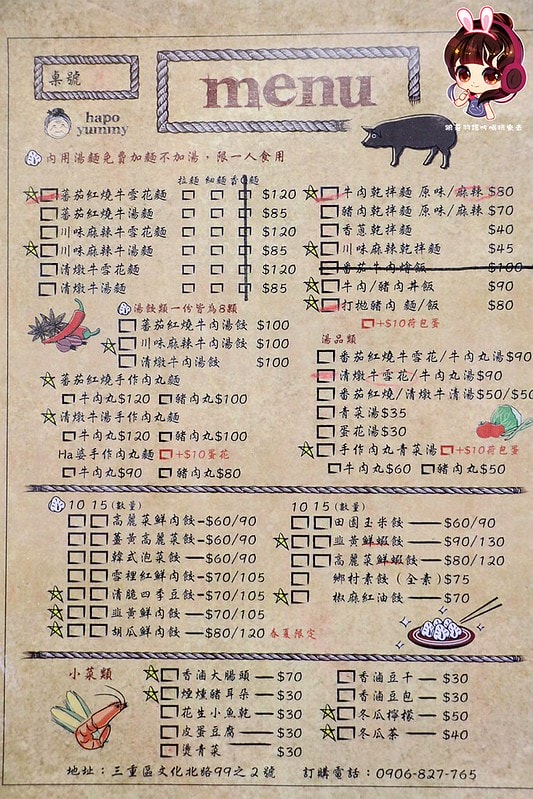 桌號
menu
hapo
yummy
內用湯麵免費加麵不加湯，限一人食用
拉麵 細麵
蕃茄紅燒牛雪花麵 $120
蕃茄紅燒牛湯麵 $85
川味麻辣牛雪花麵 $120
川味麻辣牛湯麵 $85
清燉牛雪花麵 $120
清燉牛湯麵 $85
湯餃類一份皆為8顆
蕃茄紅燒牛肉湯餃 $100
川味麻辣牛肉湯餃 $100
清燉牛肉湯餃 $100
蕃茄紅燒手作肉丸麵
牛肉丸$120 豬肉丸$100
清燉牛湯手作肉丸麵
牛肉丸$120 豬肉丸$100
Ha婆手作肉丸麵 +$10蛋花
牛肉丸$90 豬肉丸$80
牛肉乾拌麵 原味/麻辣 $80
豬肉乾拌麵 原味/麻辣 $70
香蔥乾拌麵 $40
川味麻辣乾拌麵 $45
蕃茄牛肉燴飯 $100
牛肉/豬肉丼飯 $90
打拋豬肉 麵/飯 $80
+$10荷包蛋
湯品類
蕃茄紅燒牛雪花/牛肉丸湯$90
清燉牛雪花/牛肉丸湯$90
蕃茄紅燒/清燉牛清湯$50/$50
青菜湯$35
蛋花湯$30
手作肉丸青菜湯 +$10荷包蛋
牛肉丸$60 豬肉丸$50
10 15(數量)
高麗菜鮮肉餃-$60/90
薑黃高麗菜餃-$60/90
韓式泡菜餃—$60/90
雪裡紅鮮肉餃-$70/105
清脆四季豆餃-$70/105
韭黃鮮肉餃—$70/105
胡瓜鮮肉餃—$80/120 春夏限定
10 15(數量)
田園玉米餃—$60/90
韭黃鮮蝦餃—$90/130
高麗菜鮮蝦餃—$80/120
鄉村素餃（全素）$75
椒麻紅油餃—$70
小菜類
香滷大腸頭—$70
煙燻豬耳朵—$30
花生小魚乾—$30
皮蛋豆腐—$30
燙青菜 $30
香滷豆干—$30
香滷豆包—$30
冬瓜檸檬—$50
冬瓜茶—$40
地址：三重區文化北路99之2號 訂購電話：0906-827-765